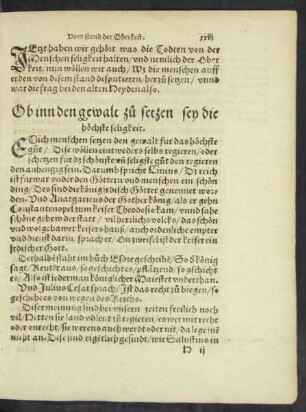 Vom stand der Oberkeit. xxvj
JEtzt haben wir gehört was die Todten von der
Menschen seligkeit halten / und nemlich der Ober
keit. nun wöllen wir auch / Wz die menschen auff
erden von disem stand disputieren / herzů setzen / unnd
war die frag bei den alten Heyden also.
Ob inn den gewalt zů setzen sey die
höchste seligkeit.
ETlich menschen setzen den gewalt fur das höchste
gůt / Dise wöllen eintweders selbs regieren / oder
schetzen fur dz schönste uñ seligste gůt den regierten
den anhengig sein. Darumb spricht Linius / Dz reich
ist fur war under den Göttern und menschen ein schön
ding / Des sind die könig irdisch Götter genennet wor-
den. Und Anatgaricus der Gother könig / als er gehn
Constantenopel zum keiser Theodosio kam / unnd sahe
schöne gebew der statt / vil herzlichs volcks / der burg
und wolgebawet keisers hauß / auch ordenlich empter
und dienst darin / sprach er / On zweifel ist der keiser ein
irdischer Gott.
Derhalbe staht im bůch Esdre geschribē / So d könig
sagt / Reut / so geschichtes / pflantzend / so gschicht
es / Also ist jederman königlicher Maiestet underthan.
Und Julius Cesar sprach / Ist das recht zů biegen / so
geschehe es von wegen des Reichs.
Diser meinung sind bei unsern zeiten freilich noch
vil / Hetten sie land völcker zů regieren / es wer mit recht
oder on recht / sie werens auch werdt oder nit / da lege nē
nicht an. Dise sind eigetlich gesindt / wie Salustius in
H ij